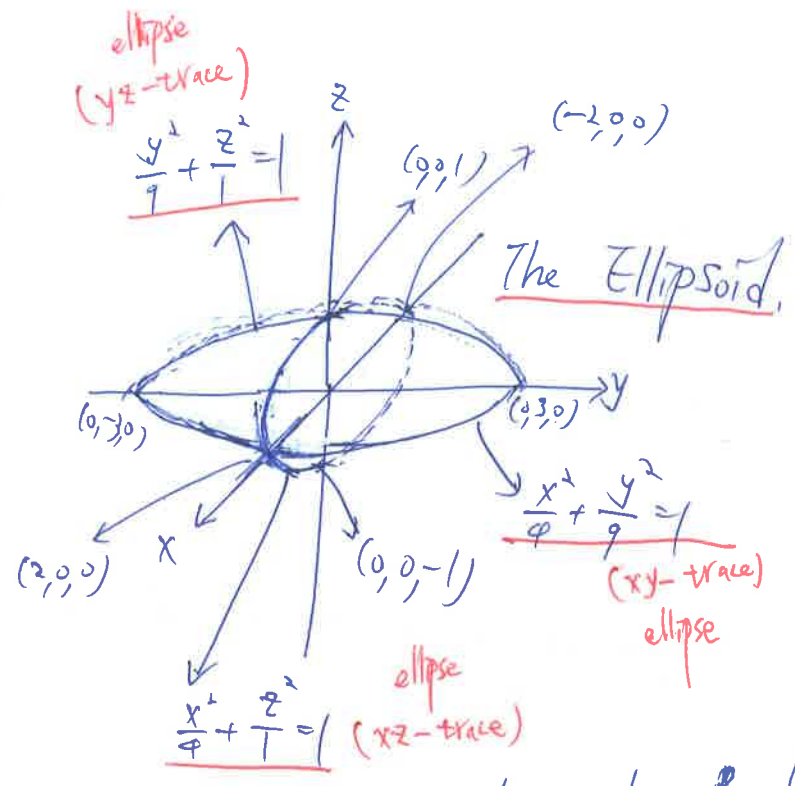 ellipse
(yz-trace)
y²/9 + z²/1 = 1
z
(0,0,1)
(-2,0,0)
The Ellipsoid.
(0,-3,0)
(0,3,0)
y
x²/4 + y²/9 = 1
(xy-trace)
ellipse
(2,0,0)
x
(0,0,-1)
x²/4 + z²/1 = 1
ellipse
(xz-trace)